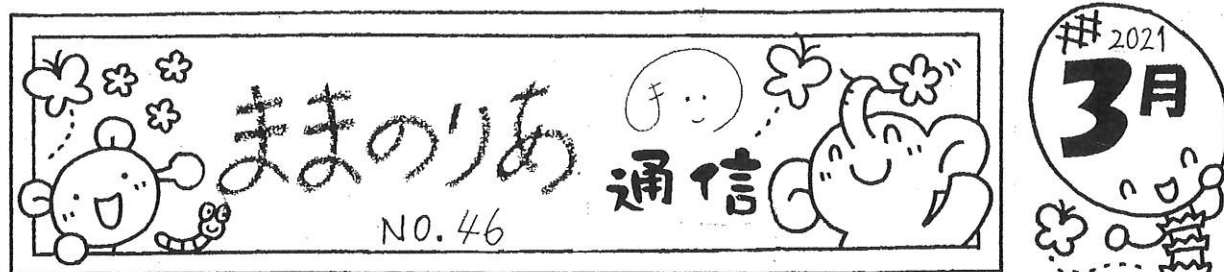 ままのりあ
ま
通信
NO.46
2021
3月